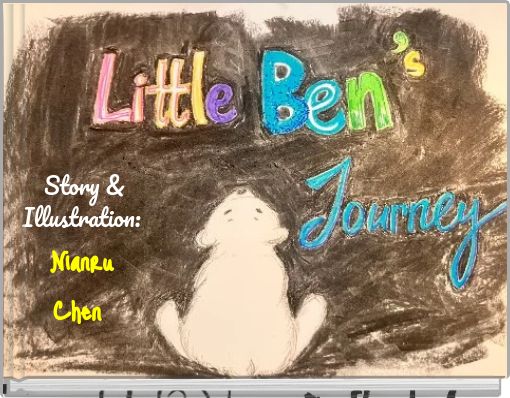 Little Ben's
Journey
Story &
Illustration:
Nianru
Chen